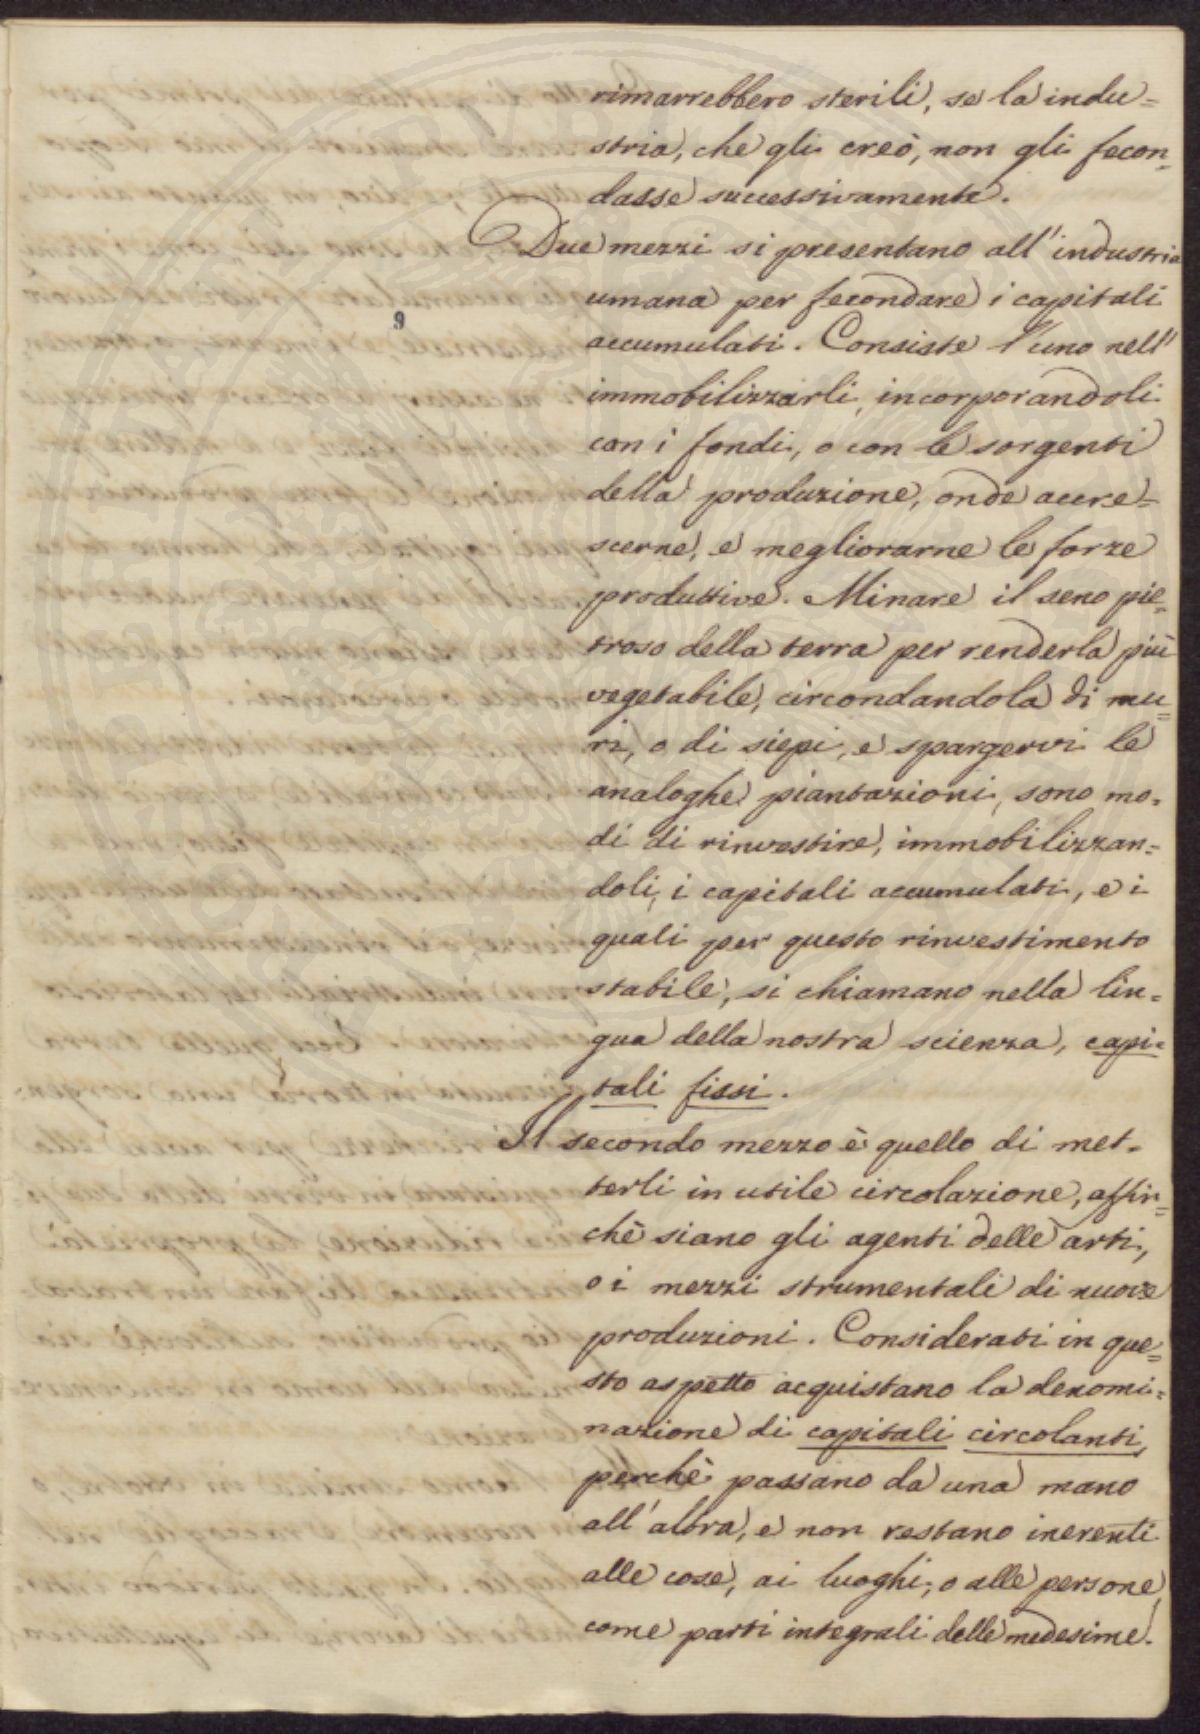 rimarrebbero sterili, se la indu=
stria, che gli creò, non gli fecon=
dasse successivamente.
Due mezzi si presentano all'industria
umana per fecondare i capitali
9
accumulati. Consiste l'uno nell'
immobilizzarli, incorporandoli
con i fondi, o con le sorgenti
della produzione, onde accre=
scerne, e megliorarne le forze
produttive. Minare il seno pie=
troso della terra per renderla più
vegetabile, circondandola di mu=
ri, o di siepi, e spargervi le
analoghe piantazioni, sono mo=
di di rinvestire, immobilizzan=
doli, i capitali accumulati, e i
quali per questo rinvestimento
stabile, si chiamano nella lin=
gua della nostra scienza, capi=
tali fissi.
Il secondo mezzo è quello di met=
terli in utile circolazione, affin=
chè siano gli agenti delle arti,
o i mezzi strumentali di nuove
produzioni. Considerati in que=
sto aspetto acquistano la denomi=
nazione di capitali circolanti,
perchè passano da una mano
all'altra, e non restano inerenti
alle cose, ai luoghi, o alle persone,
come parti integrali delle medesime.